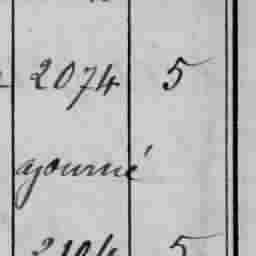 2074 5
ajourné
2104 5